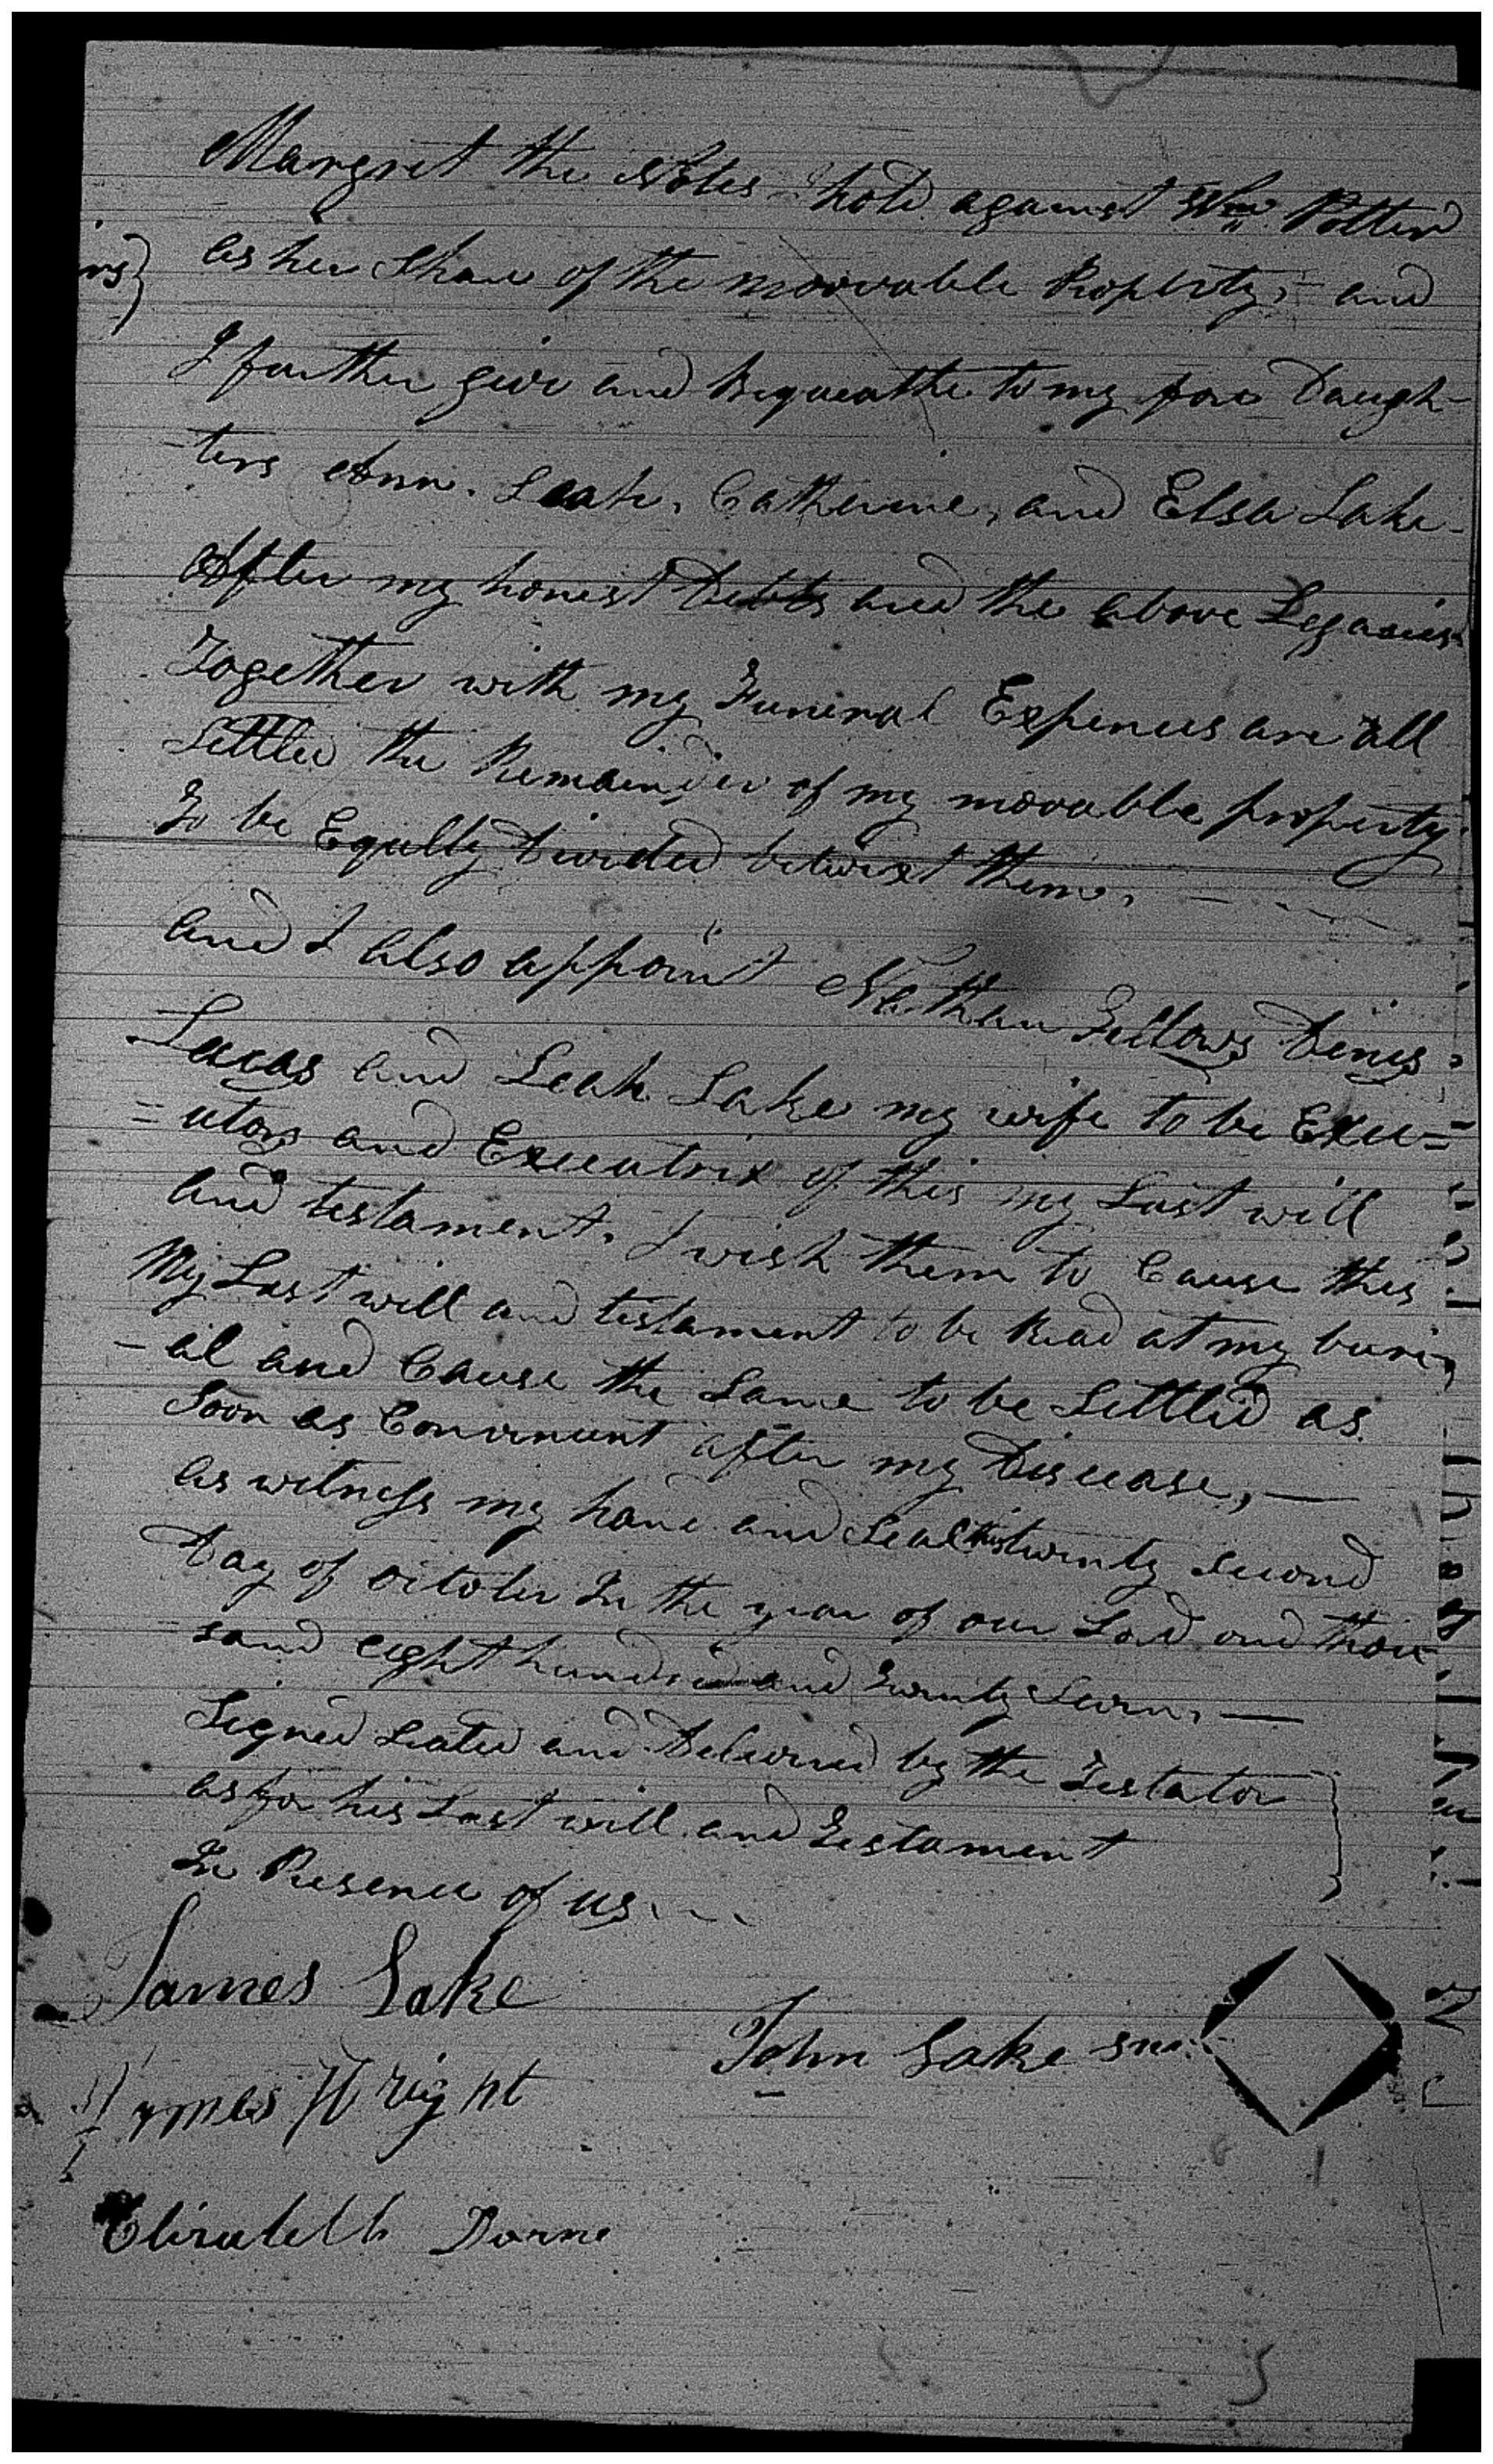 Margret the Notes I hold against Wm Potter
as her Share of the moovable Property, and
rs}
I further give and Bequeathe to my four Daugh-
-ters Ann. Leah, Catherine, and Elsa Lake-
After my honest Debts and the above Legacies
Together with my Funeral Expences are all
Settled the Remainder of my movable property
To be Equilly Divided betwixt them.
and I also appoint Nathan Fellows Denis
Lucas and Leah Lake my wife to be Exec=
=utors and Executrix of this my Last will
and testament. I wish them to Cause this
My Last will and testament to be Read at my buri-
-al and Cause the Same to be Settled as
Soon as Convenient after my Disease, —
as witness my hand and Seal this twenty second
Day of October In the year of our Lord one thou
-sand eight hundred and twenty Seven, —
Signed Sealed and Delivered by the Testator
as for his Last will and Testament
In Presence of us
James Lake
John Lake Snr
James Wright
Elizabeth Dorne